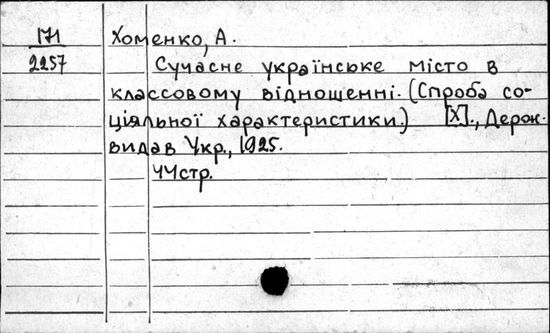 171 Хоменко, А.
2257 Сучасне українське місто в
классовому відношенні. (Спроба со-
ціяльної характеристики.) [Х]., Держ.
видав Укр., 1925.
44стр.